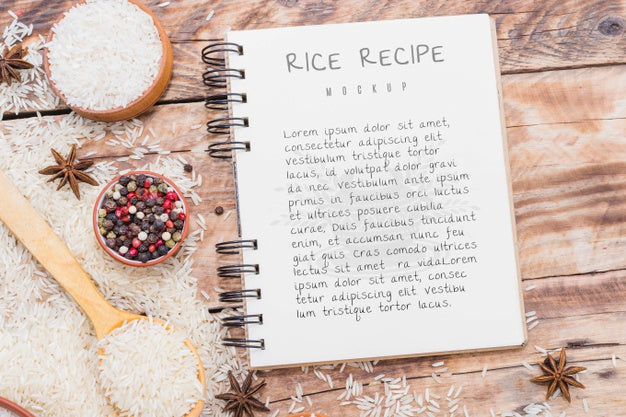 RICE RECIPE
MOCKUP
Lorem ipsum dolor sit amet,
consectetur adipiscing elit.
Vestibulum tristique turpis
lacus, id volutpat dolor gravi
da nec. Vestibulum ante ipsum
primis in faucibus orci luctus
et ultrices posuere cubilia
curae; Duis faucibus tincidunt
enim, et accumsan nunc congue
eu. Crus commodo ultrices
lectus sit amet  ra vida. Lorem
ipsum dolor sit amet, consec
tetur adipiscing elit. Vestibu
lum tristique turpis lacus.